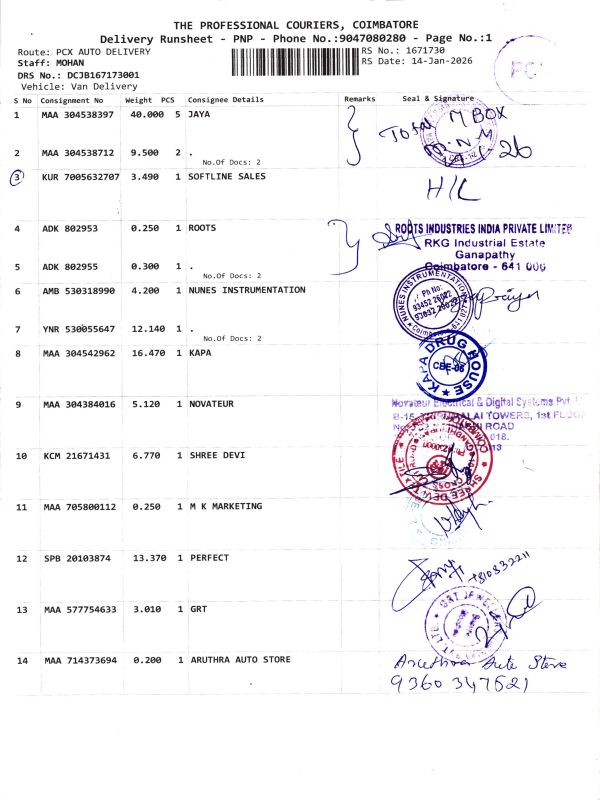 THE PROFESSIONAL COURIERS, COIMBATORE
Delivery Runsheet - PNP - Phone No.:9047080280 - Page No.:1
Route: PCX AUTO DELIVERY
RS No.: 1671730
Staff: MOHAN
RS Date: 14-Jan-2026
DRS No.: DCJB167173001
Vehicle: Van Delivery
PC
S No Consignment No Weight PCS Consignee Details Remarks Seal & Signature
1 MAA 304538397 40.000 5 JAYA
Total M BOX
2 MAA 304538712 9.500 2 .
No.Of Docs: 2
3 KUR 7005632707 3.490 1 SOFTLINE SALES
H/L
4 ADK 802953 0.250 1 ROOTS
ROOTS INDUSTRIES INDIA PRIVATE LIMITED
RKG Industrial Estate
Ganapathy
Coimbatore - 641 006
5 ADK 802955 0.300 1 .
No.Of Docs: 2
6 AMB 530318990 4.200 1 NUNES INSTRUMENTATION
NUNES INSTRUMENTATION
Ph No:
7 YNR 530055647 12.140 1 .
No.Of Docs: 2
8 MAA 304542962 16.470 1 KAPA
KAPA DRUG HOUSE
CBE-08
9 MAA 304384016 5.120 1 NOVATEUR
Novateur Electrical & Digital Systems Pvt.
TOWERS, 1st FLOOR
ROAD
018.
10 KCM 21671431 6.770 1 SHREE DEVI
SHREE DEVI TEXTILE
11 MAA 705800112 0.250 1 M K MARKETING
12 SPB 20103874 13.370 1 PERFECT
13 MAA 577754633 3.010 1 GRT
GRT JEWELLERS
14 MAA 714373694 0.200 1 ARUTHRA AUTO STORE
Aruthra Auto Store
9360347621